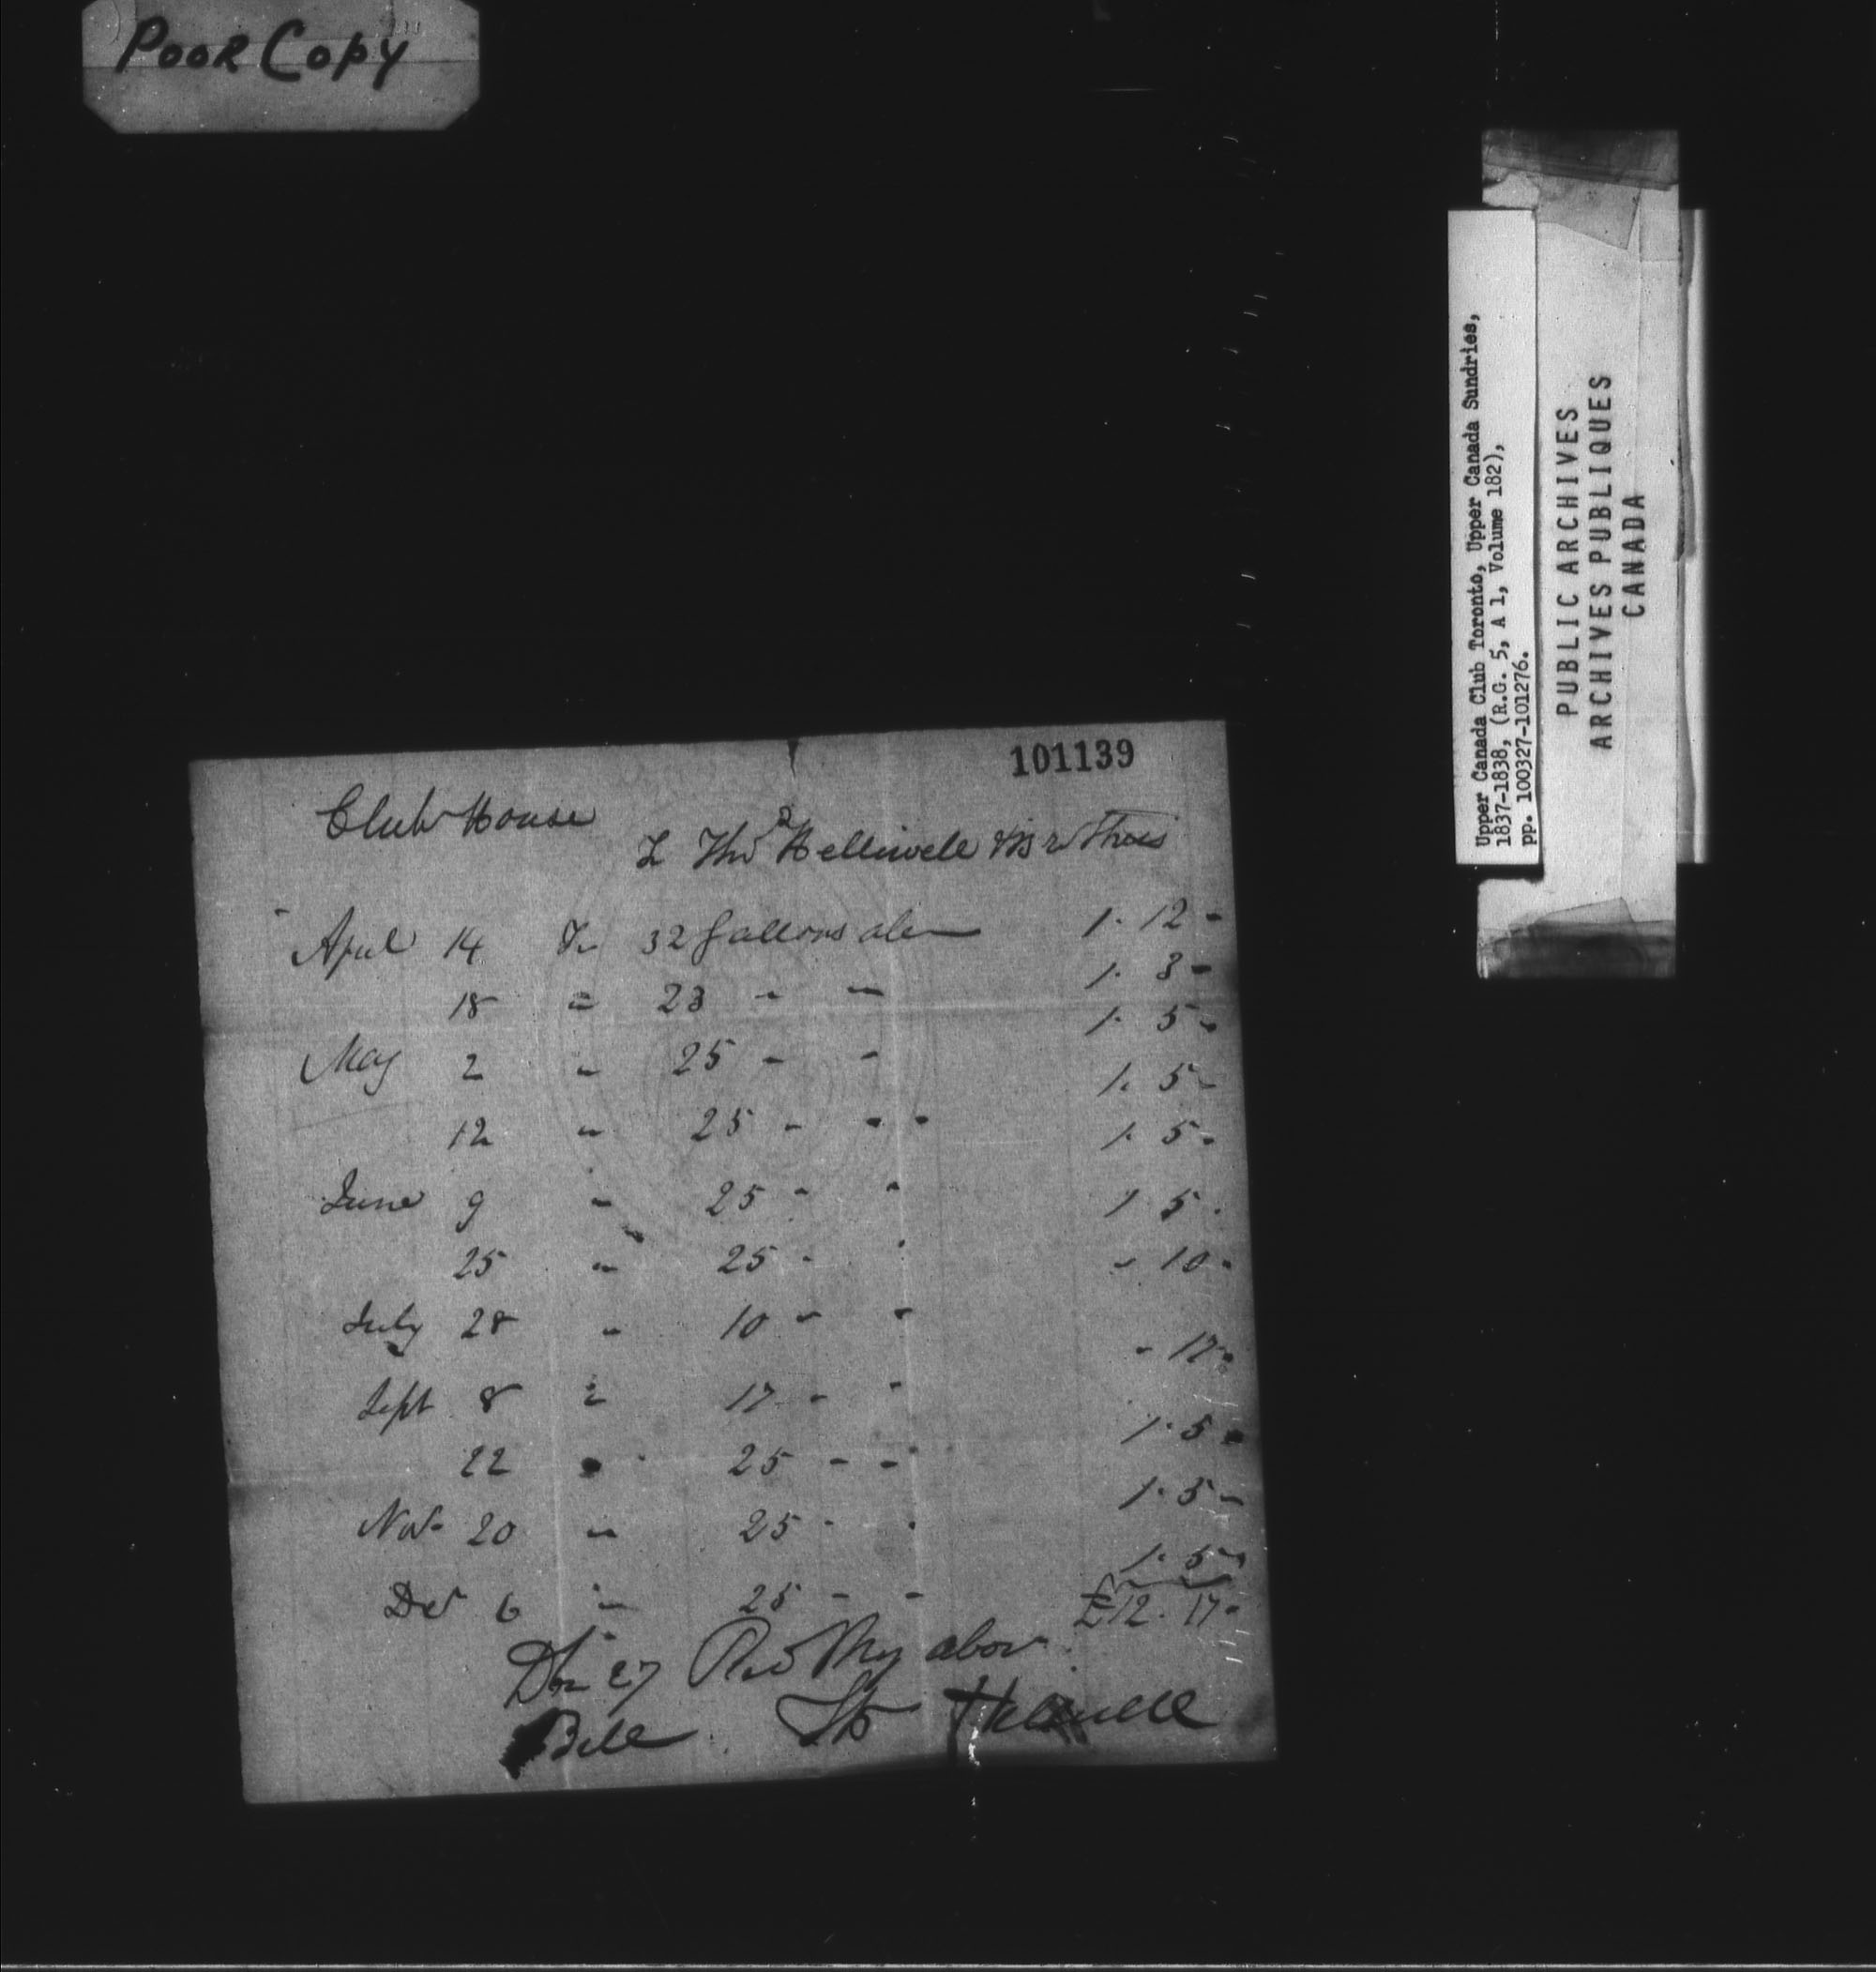 Poor Copy
Upper Canada Club Toronto, Upper Canada Sundries,
1837-1838, (R.G. 5, A 1, Volume 182),
pp. 100327-101276.
PUBLIC ARCHIVES
ARCHIVES PUBLIQUES
CANADA
101139
Club House
To Thos Helliwell & Brothers
April 14 To 32 gallons ale 1. 12 -
18 " 23 - - 1. 3 -
May 2 " 25 - - 1. 5 -
12 " 25 - - - 1. 5 -
June 9 " 25 - - 1. 5 -
25 " 25 - - 1 5 .
July 28 " 10 - - - 10 -
Sept 8 " 17 - - - 17 -
22 " 25 - - 1. 5 -
Nov 20 " 25 - - 1. 5 -
Dec 6 " 25 - - 1. 5 -
£12. 17 -
27 above
Bill Helliwell